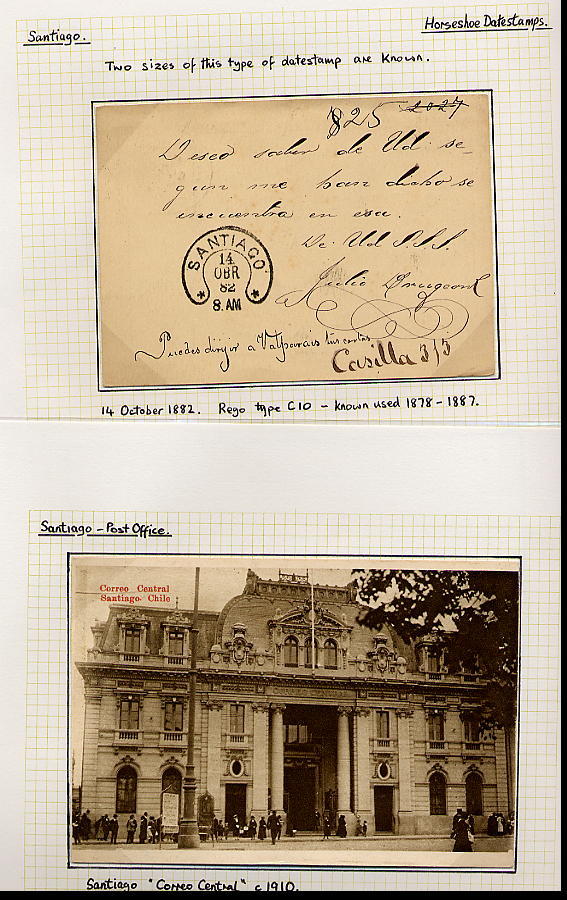 Santiago.
Horseshoe Datestamps.
Two sizes of this type of datestamp are known.
825 2027
Deseo saber de Ud. se-
gun me han dicho se
encuentra en esa.
De Ud S.S.S.
Julio
SANTIAGO
14
OBR
82
8. AM
Puedes dirijir a Valparais tus cartas
Casilla 313
14 October 1882. Rego type C10 - known used 1878-1887.
Santiago - Post Office.
Correo Central
Santiago. Chile
Santiago "Correo Central" c1910.